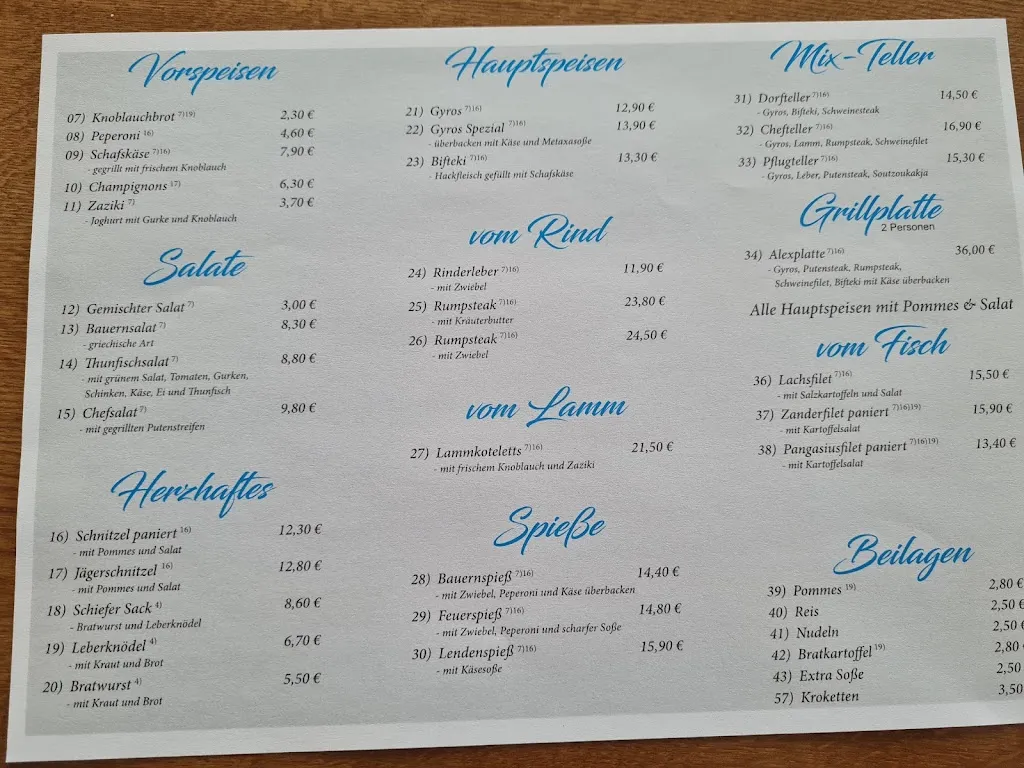 Vorspeisen
07) Knoblauchbrot 7)19) 2,30 €
08) Peperoni 16) 4,60 €
09) Schafskäse 7)16) 7,90 €
- gegrillt mit frischem Knoblauch
10) Champignons 17) 6,30 €
11) Zaziki 7) 3,70 €
- Joghurt mit Gurke und Knoblauch
Salate
12) Gemischter Salat 7) 3,00 €
13) Bauernsalat 7) 8,30 €
- griechische Art
14) Thunfischsalat 7) 8,80 €
- mit grünem Salat, Tomaten, Gurken,
Schinken, Käse, Ei und Thunfisch
15) Chefsalat 7) 9,80 €
- mit gegrillten Putenstreifen
Herzhaftes
16) Schnitzel paniert 16) 12,30 €
- mit Pommes und Salat
17) Jägerschnitzel 16) 12,80 €
- mit Pommes und Salat
18) Schiefer Sack 4) 8,60 €
- Bratwurst und Leberknödel
19) Leberknödel 4) 6,70 €
- mit Kraut und Brot
20) Bratwurst 4) 5,50 €
- mit Kraut und Brot
Hauptspeisen
21) Gyros 7)16) 12,90 €
22) Gyros Spezial 7)16) 13,90 €
- überbacken mit Käse und Metaxasoße
23) Bifteki 7)16) 13,30 €
- Hackfleisch gefüllt mit Schafskäse
vom Rind
24) Rinderleber 7)16) 11,90 €
- mit Zwiebel
25) Rumpsteak 7)16) 23,80 €
- mit Kräuterbutter
26) Rumpsteak 7)16) 24,50 €
- mit Zwiebel
vom Lamm
27) Lammkoteletts 7)16) 21,50 €
- mit frischem Knoblauch und Zaziki
Spieße
28) Bauernspieß 7)16) 14,40 €
- mit Zwiebel, Peperoni und Käse überbacken
29) Feuerspieß 7)16) 14,80 €
- mit Zwiebel, Peperoni und scharfer Soße
30) Lendenspieß 7)16) 15,90 €
- mit Käsesoße
Mix-Teller
31) Dorfteller 7)16) 14,50 €
- Gyros, Bifteki, Schweinesteak
32) Chefteller 7)16) 16,90 €
- Gyros, Lamm, Rumpsteak, Schweinefilet
33) Pflugteller 7)16) 15,30 €
- Gyros, Leber, Putensteak, Soutzoukakja
Grillplatte
2 Personen
34) Alexplatte 7)16) 36,00 €
- Gyros, Putensteak, Rumpsteak,
Schweinefilet, Bifteki mit Käse überbacken
Alle Hauptspeisen mit Pommes & Salat
vom Fisch
36) Lachsfilet 7)16) 15,50 €
- mit Salzkartoffeln und Salat
37) Zanderfilet paniert 7)16)19) 15,90 €
- mit Kartoffelsalat
38) Pangasiusfilet paniert 7)16)19) 13,40 €
- mit Kartoffelsalat
Beilagen
39) Pommes 19) 2,80 €
40) Reis 2,50 €
41) Nudeln 2,50 €
42) Bratkartoffel 19) 2,80 €
43) Extra Soße 2,50
57) Kroketten 3,50